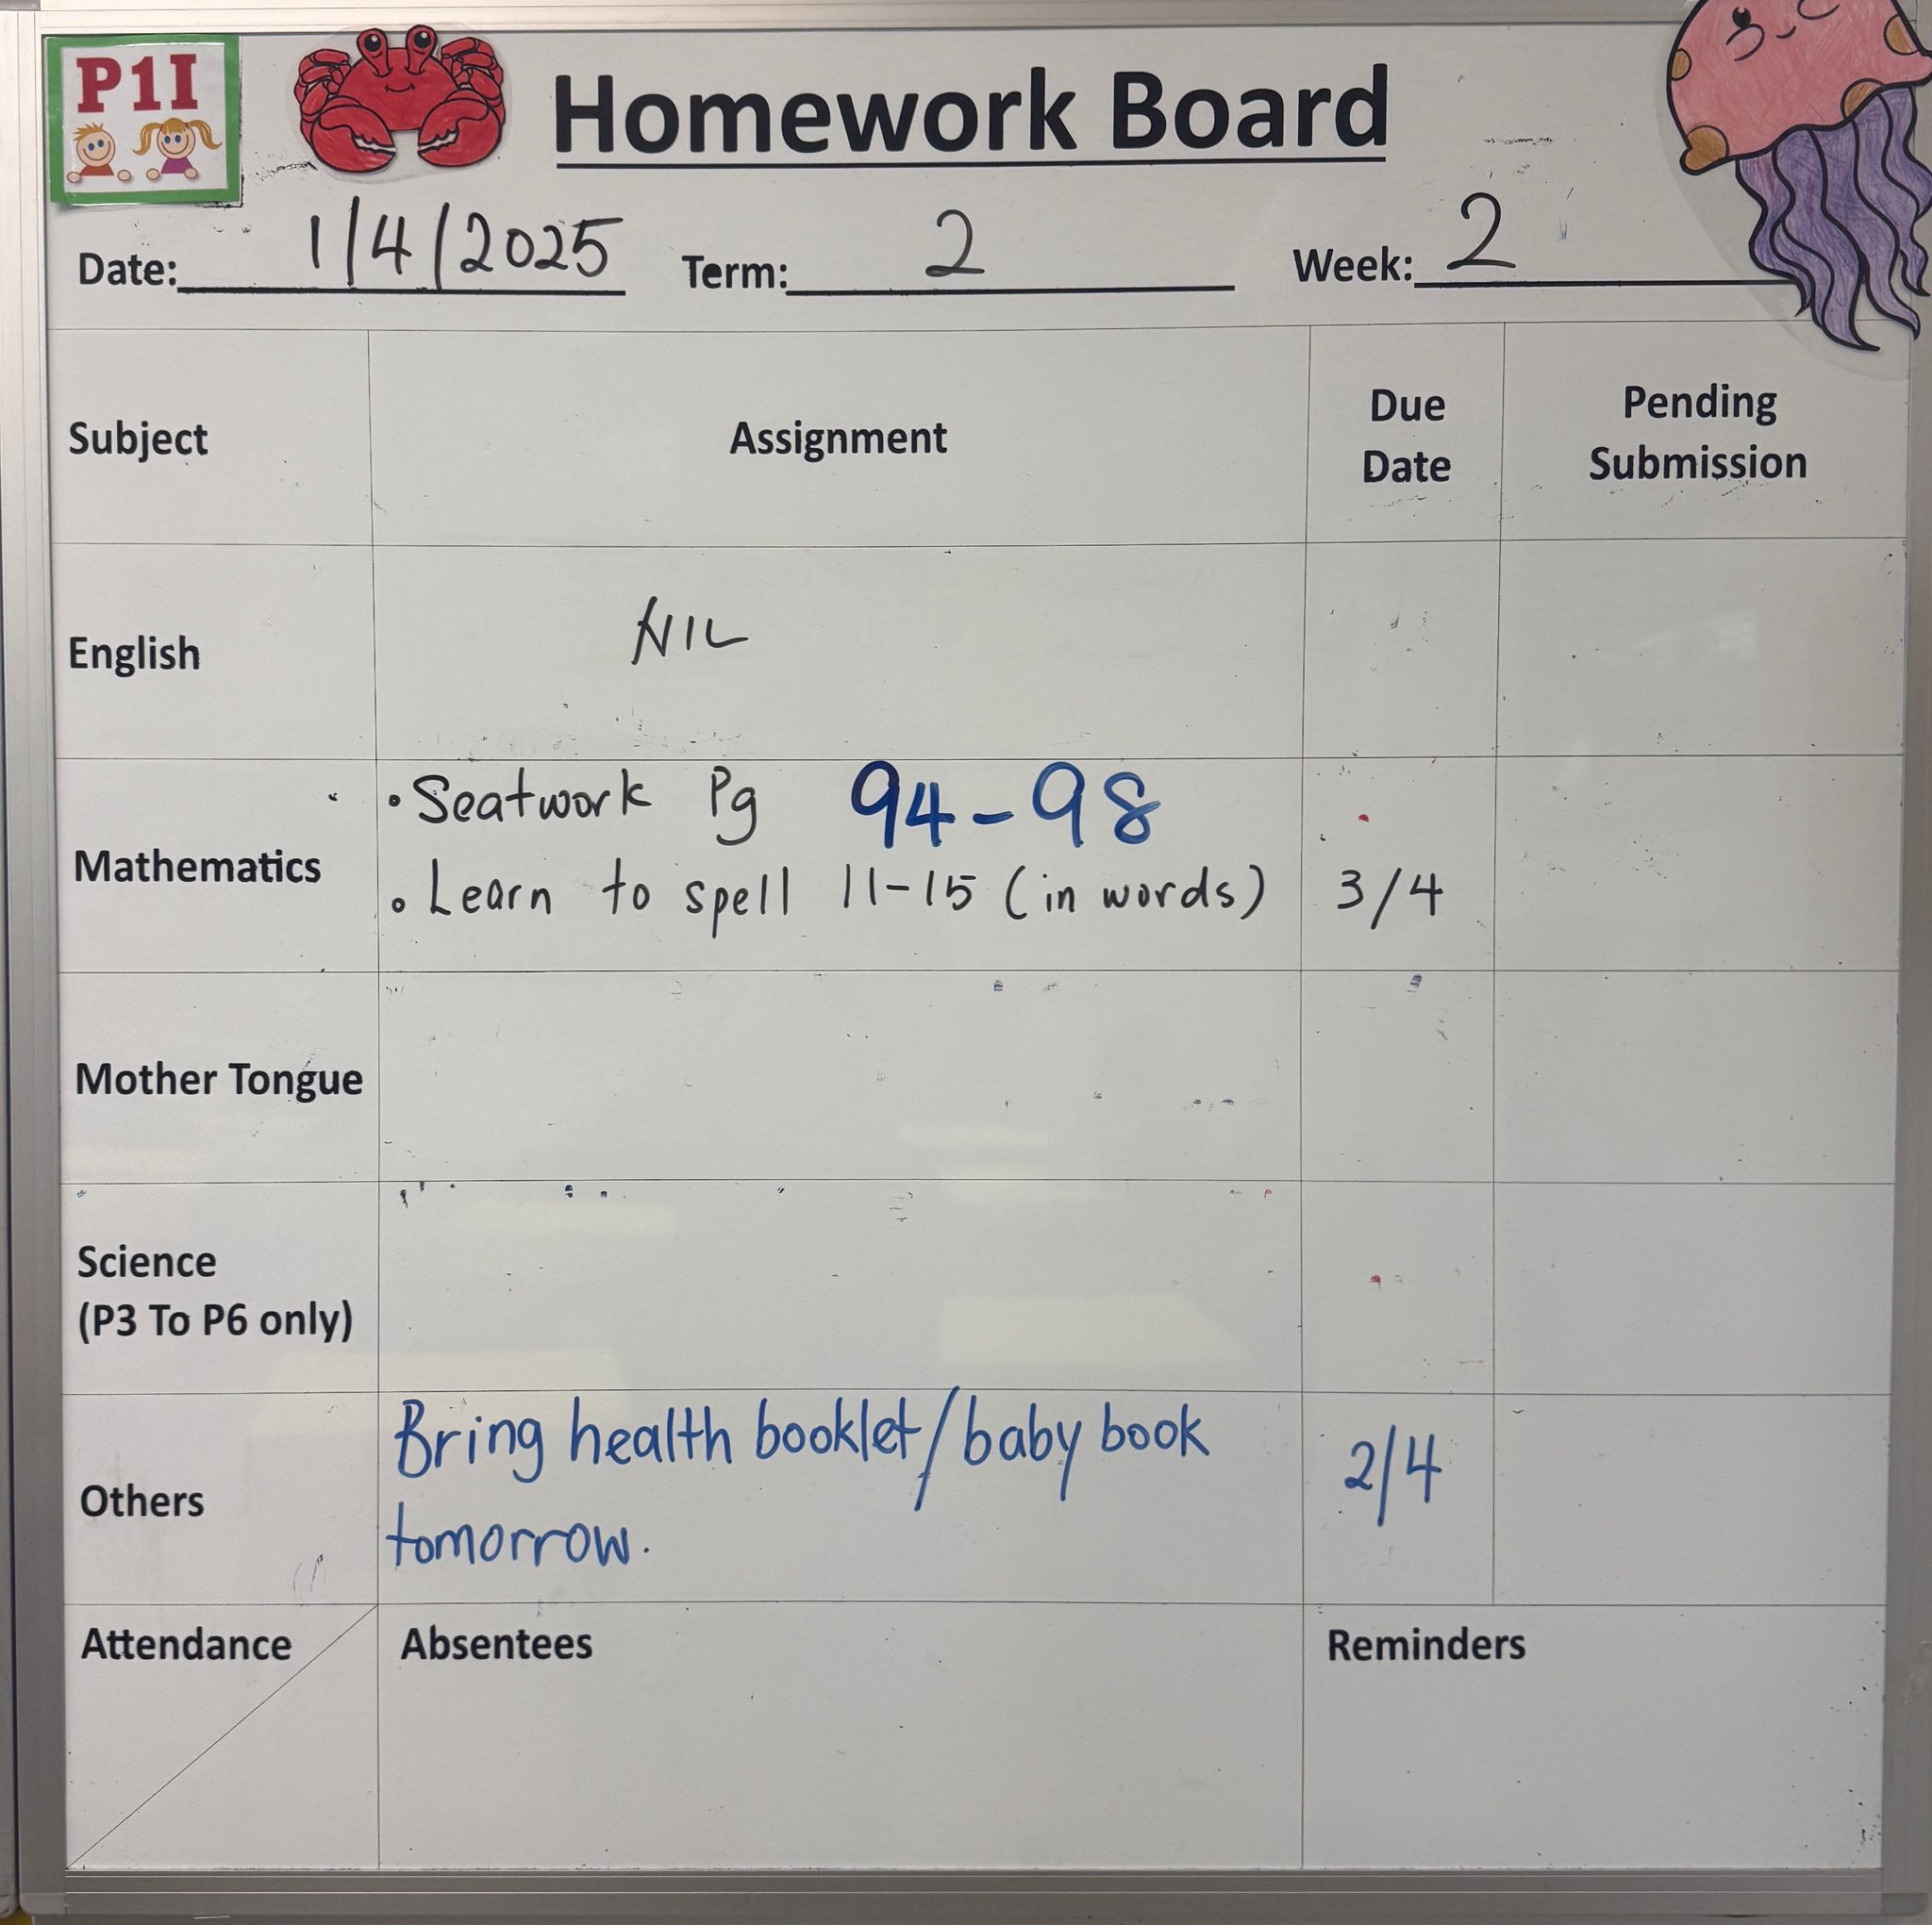 P1I
Homework Board
Date: 1/4/2025 Term: 2 Week: 2
Subject Assignment Due Date Pending Submission
English NIL
Mathematics
• Seatwork Pg 94-98
• Learn to spell 11-15 (in words) 3/4
Mother Tongue
Science
(P3 To P6 only)
Others
Bring health booklet/baby book
tomorrow.
2/4
Attendance Absentees Reminders